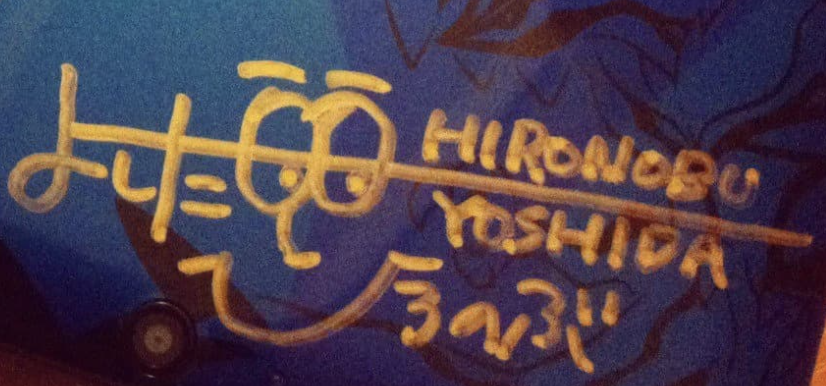 よしだ
HIRONOBU
YOSHIDA
ひろのぶ